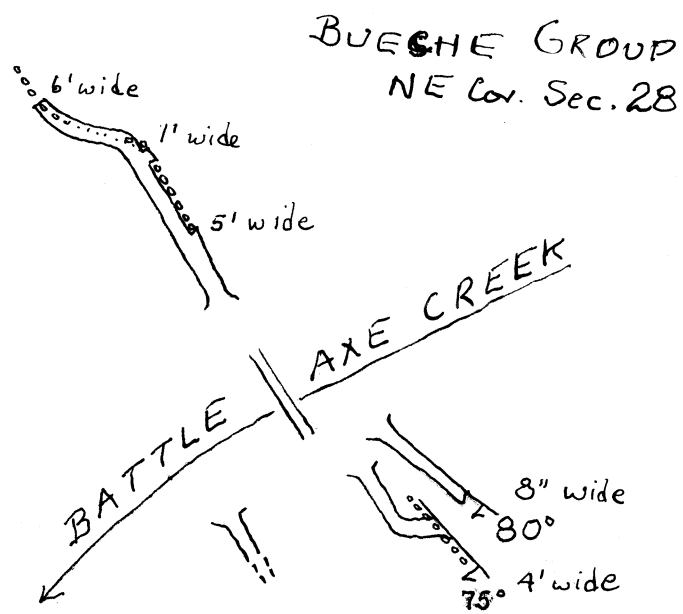 BUESHE GROUP
NE Cor. Sec. 28
6' wide
1' wide
5' wide
BATTLE AXE CREEK
8" wide
80°
4' wide
75°